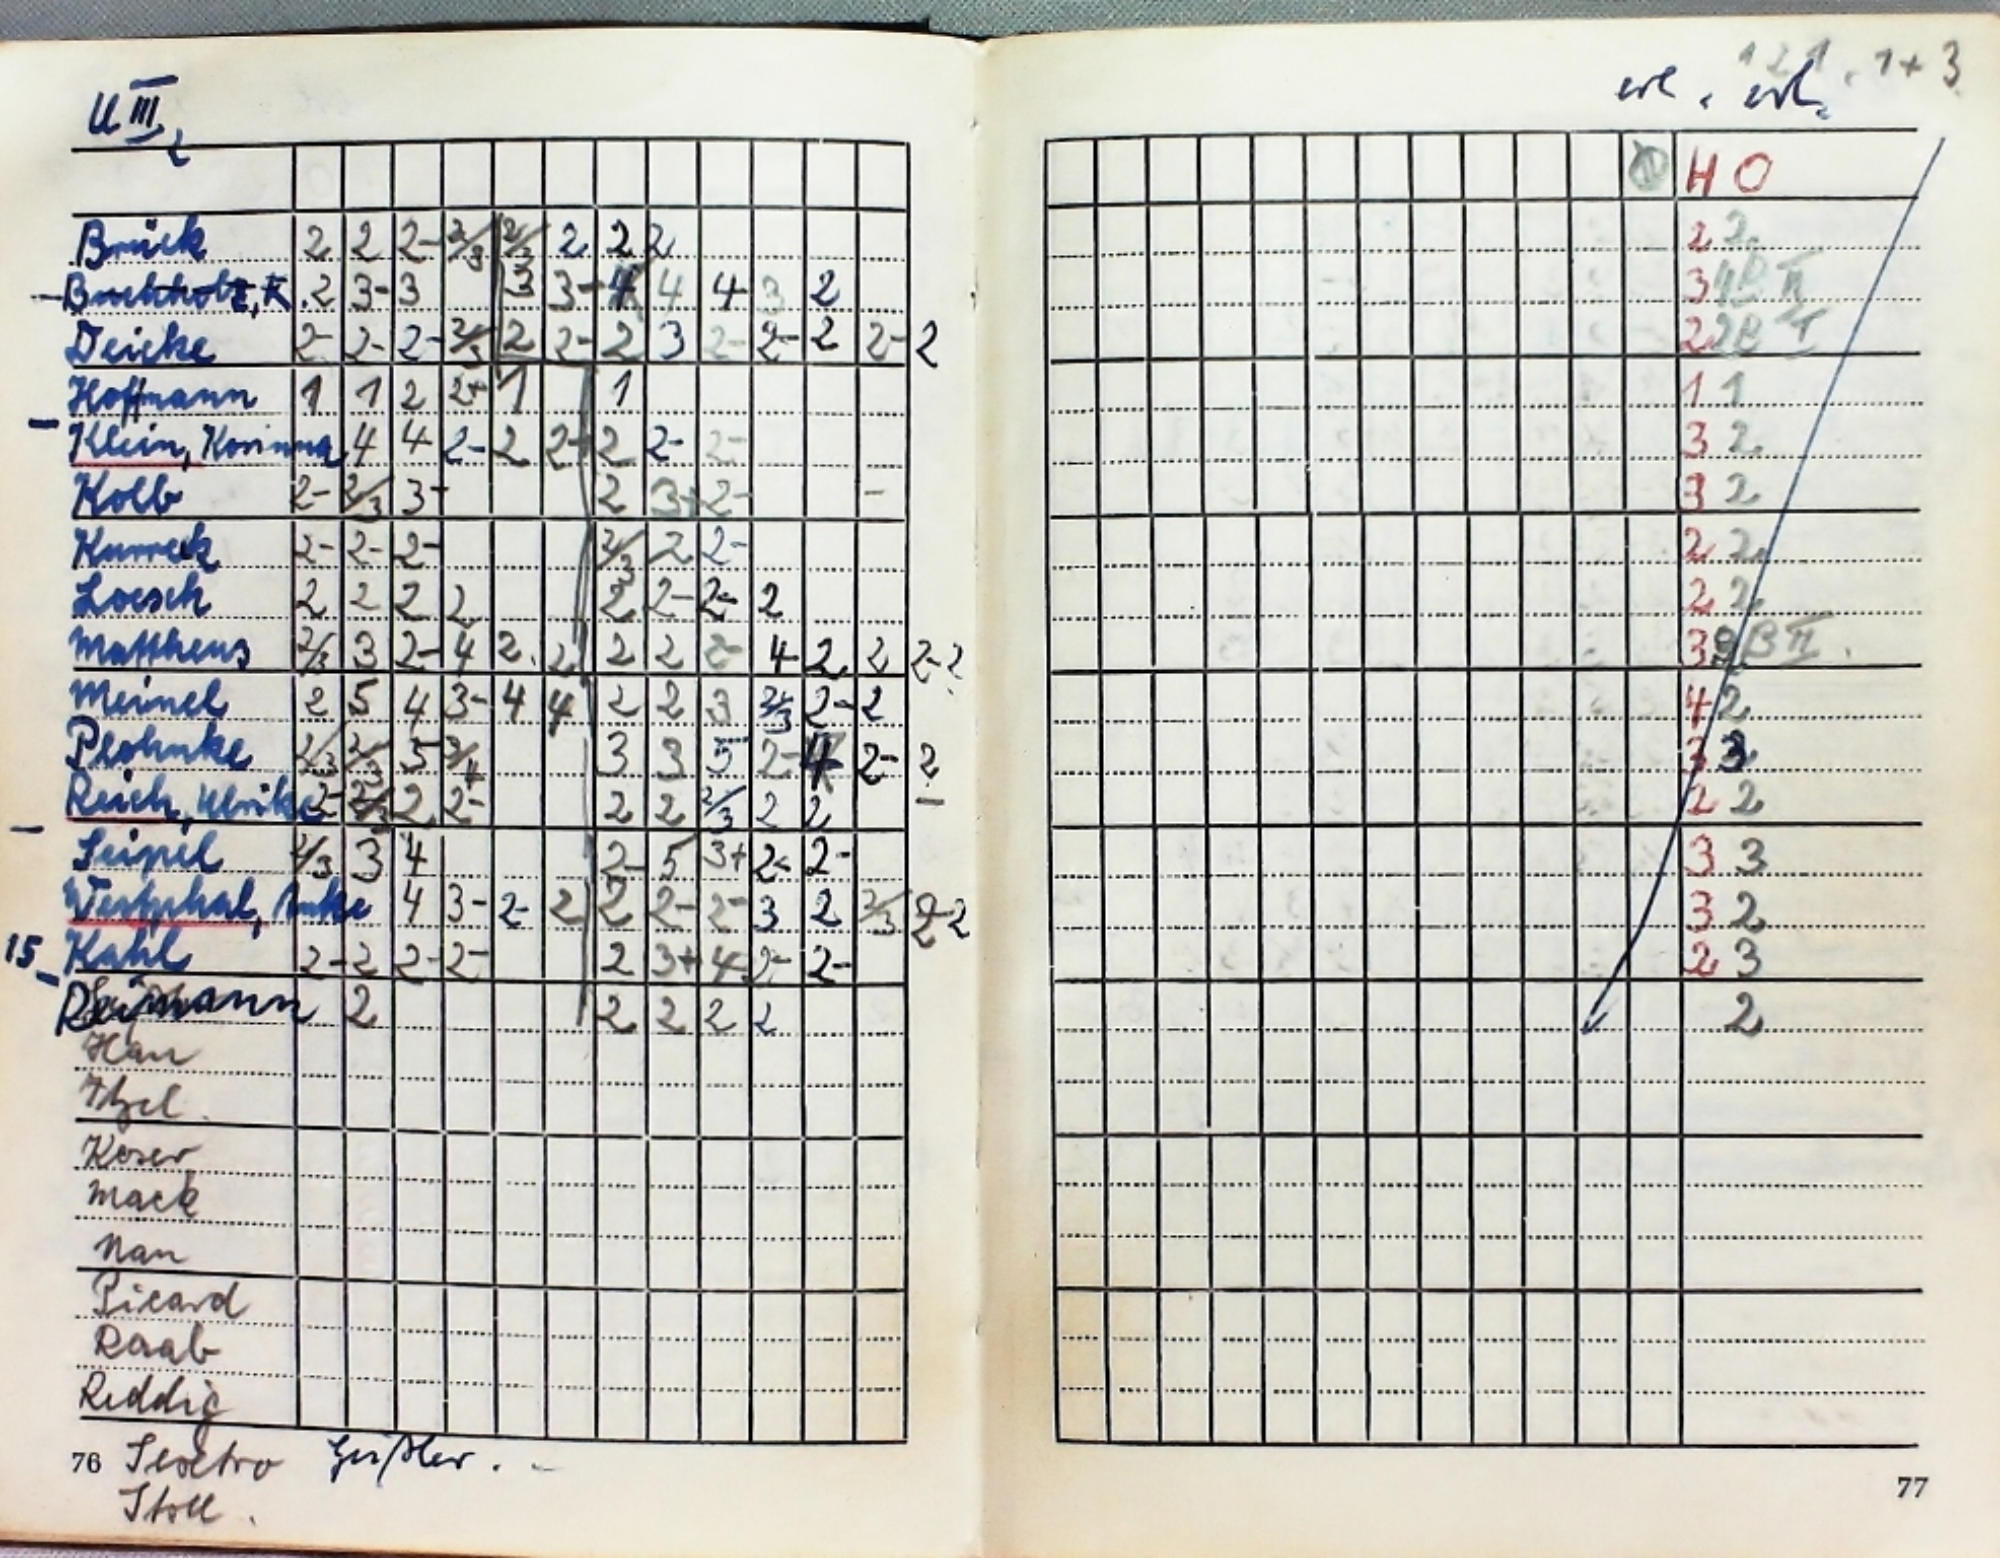 U III 2
Brück 2 2 2- 2/3 2/3 2 2 2
Buchholz, K. 2 3- 3 3 3- 4 4 4 3 2
Deicke 2- 2- 2- 2/3 2 2- 2 3 2- 2- 2 2- 2
Hoffmann 1 1 2 2+ 1 1
Klein, Korinna 4 4 2- 2 2- 2 2- 2-
Kolb 2- 2/3 3- 2 3+ 2- -
Kurreck 2- 2- 2- 2/3 2 2-
Loesch 2 2 2 2 2 2- 2- 2
Mattheus 2/3 3 2- 4 2. 2 2 2 2- 4 2 2 2- 2
Meinel 2 5 4 3- 4 4 2 2 3 2/3 2- 2
Plohnke 2/3 2/3 5 3/4 3 3 5 2- 4 2- 2
Reich, Ulrike 2- 2/3 2 2- 2 2 2/3 2 2
Seipel 2/3 3 4 2- 5 3+ 2- 2-
Westphal, Anke 4 3- 2- 2 2 2- 2- 3 2 2/3 2- 2
15 Kahl 2- 2 2- 2- 2 3+ 4 2- 2-
Reimann 2 2 2 2 2
Han
Itzel.
Koser
Mack
Nan
Picard
Raab
Reddig
76
Stoll.
1 2 1. 1+ 3
erl. erl.
H O
2 2
3 4 B II
2 2 B I
1 1
3 2
3 2
2 2
2 2
3 B II.
4 2
3 3
2 2
3 3
3 2
2 3
2
77